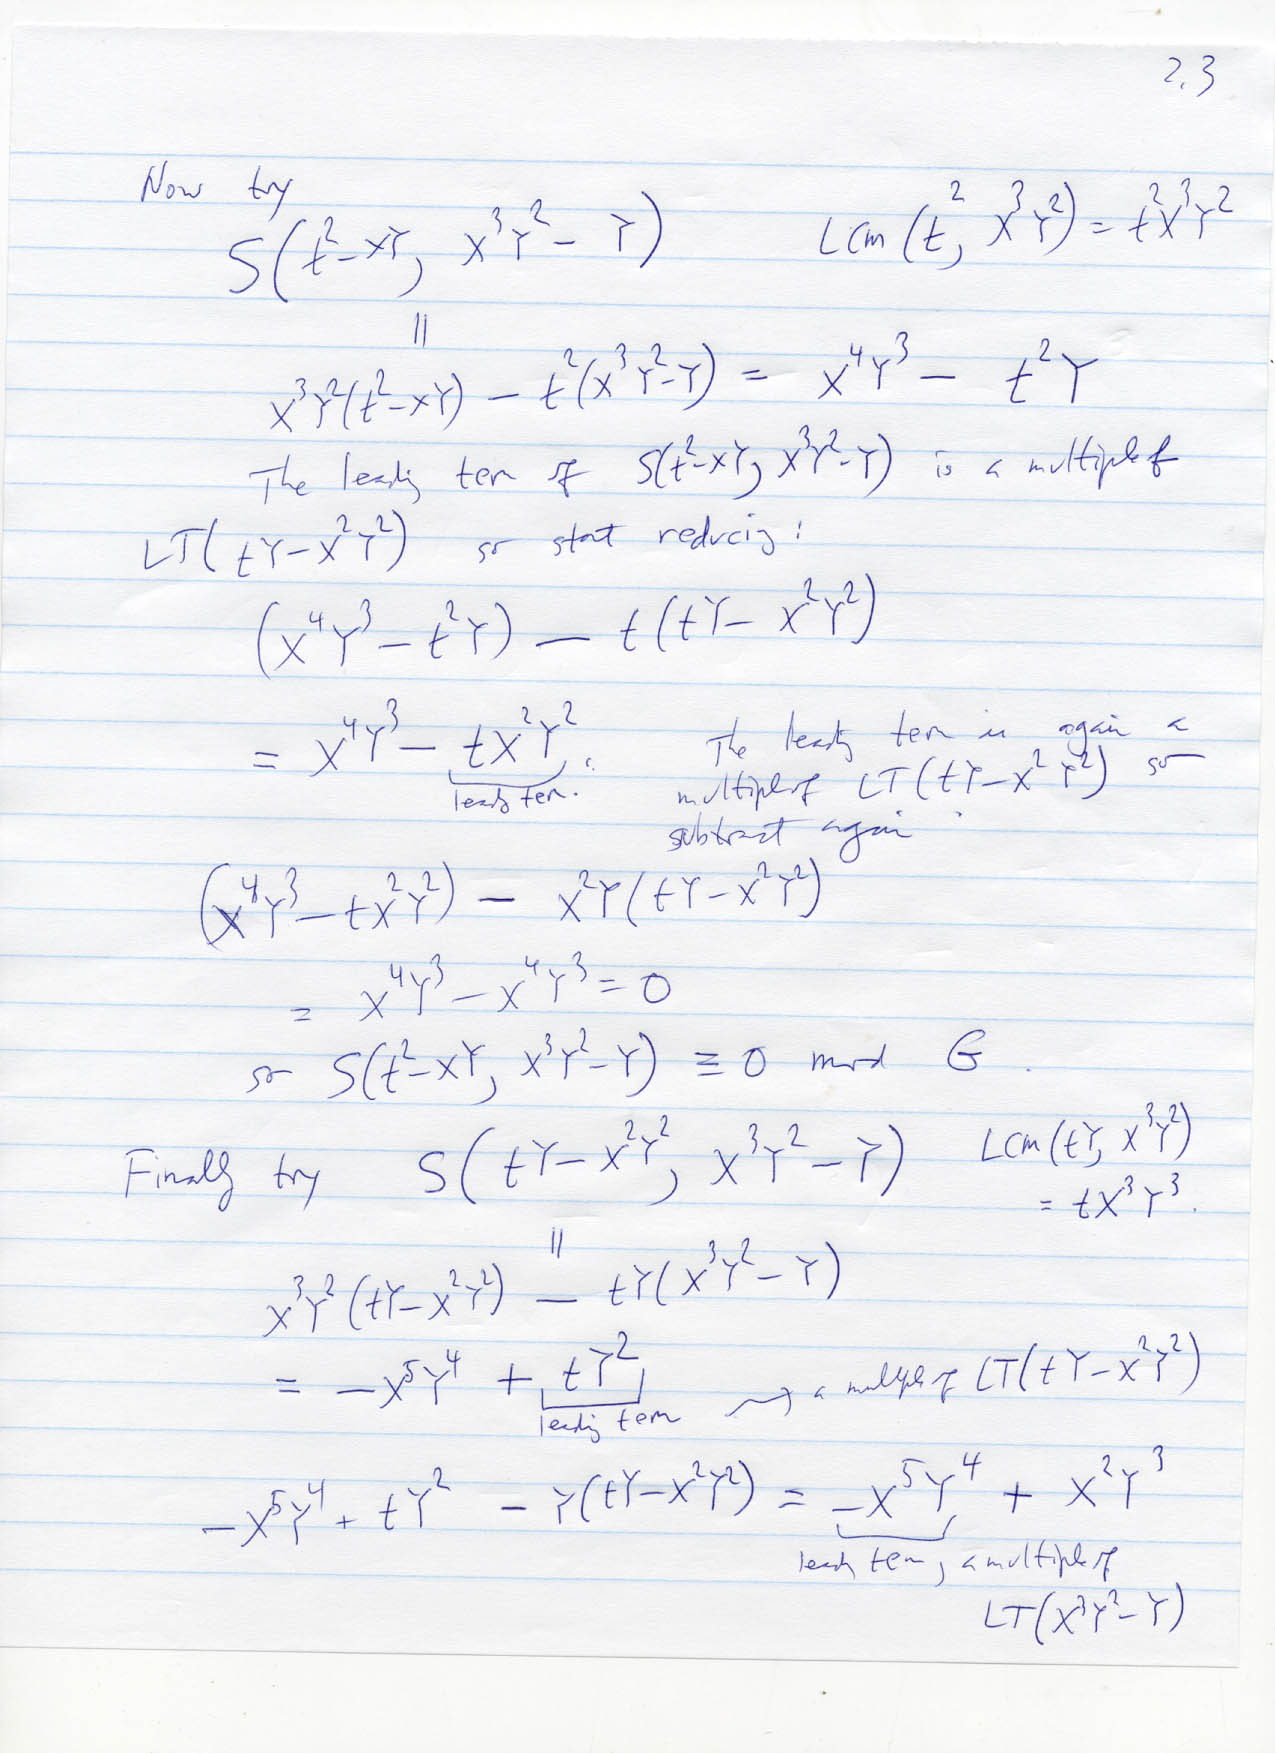 2.3
Now try
S(t²-XY, X³Y²-Y)    Lcm(t², X³Y²) = t²X³Y²
||
X³Y²(t²-XY) - t²(X³Y²-Y) = X⁴Y³ - t²Y
The leading term of S(t²-XY, X³Y²-Y) is a multiple of
LT(tY-X²Y²) so start reducing:
(X⁴Y³-t²Y) - t(tY-X²Y²)
= X⁴Y³ - tX²Y². The leading term is again a
leading term. multiple of LT(tY-X²Y²) so
subtract again
(X⁴Y³-tX²Y²) - X²Y(tY-X²Y²)
= X⁴Y³-X⁴Y³ = 0
so S(t²-XY, X³Y²-Y) ≡ 0 mod G.
Finally try S(tY-X²Y², X³Y²-Y)    Lcm(tY, X³Y²)
= tX³Y³.
||
X³Y²(tY-X²Y²) - tY(X³Y²-Y)
= -X⁵Y⁴ + tY² ⟿ a multiple of LT(tY-X²Y²)
leading term
-X⁵Y⁴ + tY² - Y(tY-X²Y²) = -X⁵Y⁴ + X²Y³
leading term, a multiple of
LT(X³Y²-Y)